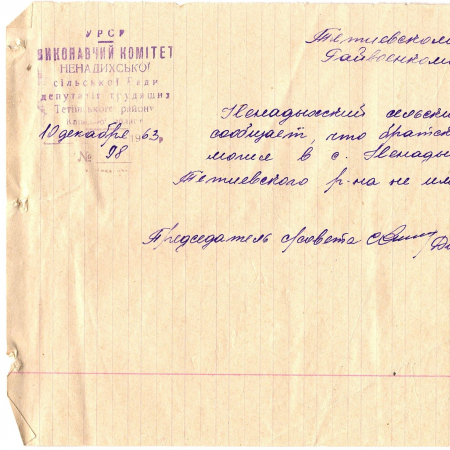 УРСР
ВИКОНАВЧИЙ КОМІТЕТ
НЕНАДИХСЬКОЇ
сільської Ради
депутатів трудящих
Тетіївського району
10 декабря 1963 р.
№ 98
Тетиевском
Райвоенком
Ненадыхский сельски
сообщает, что братск
могил в с. Ненады
Тетиевского р-на не им
Председатель с/совета